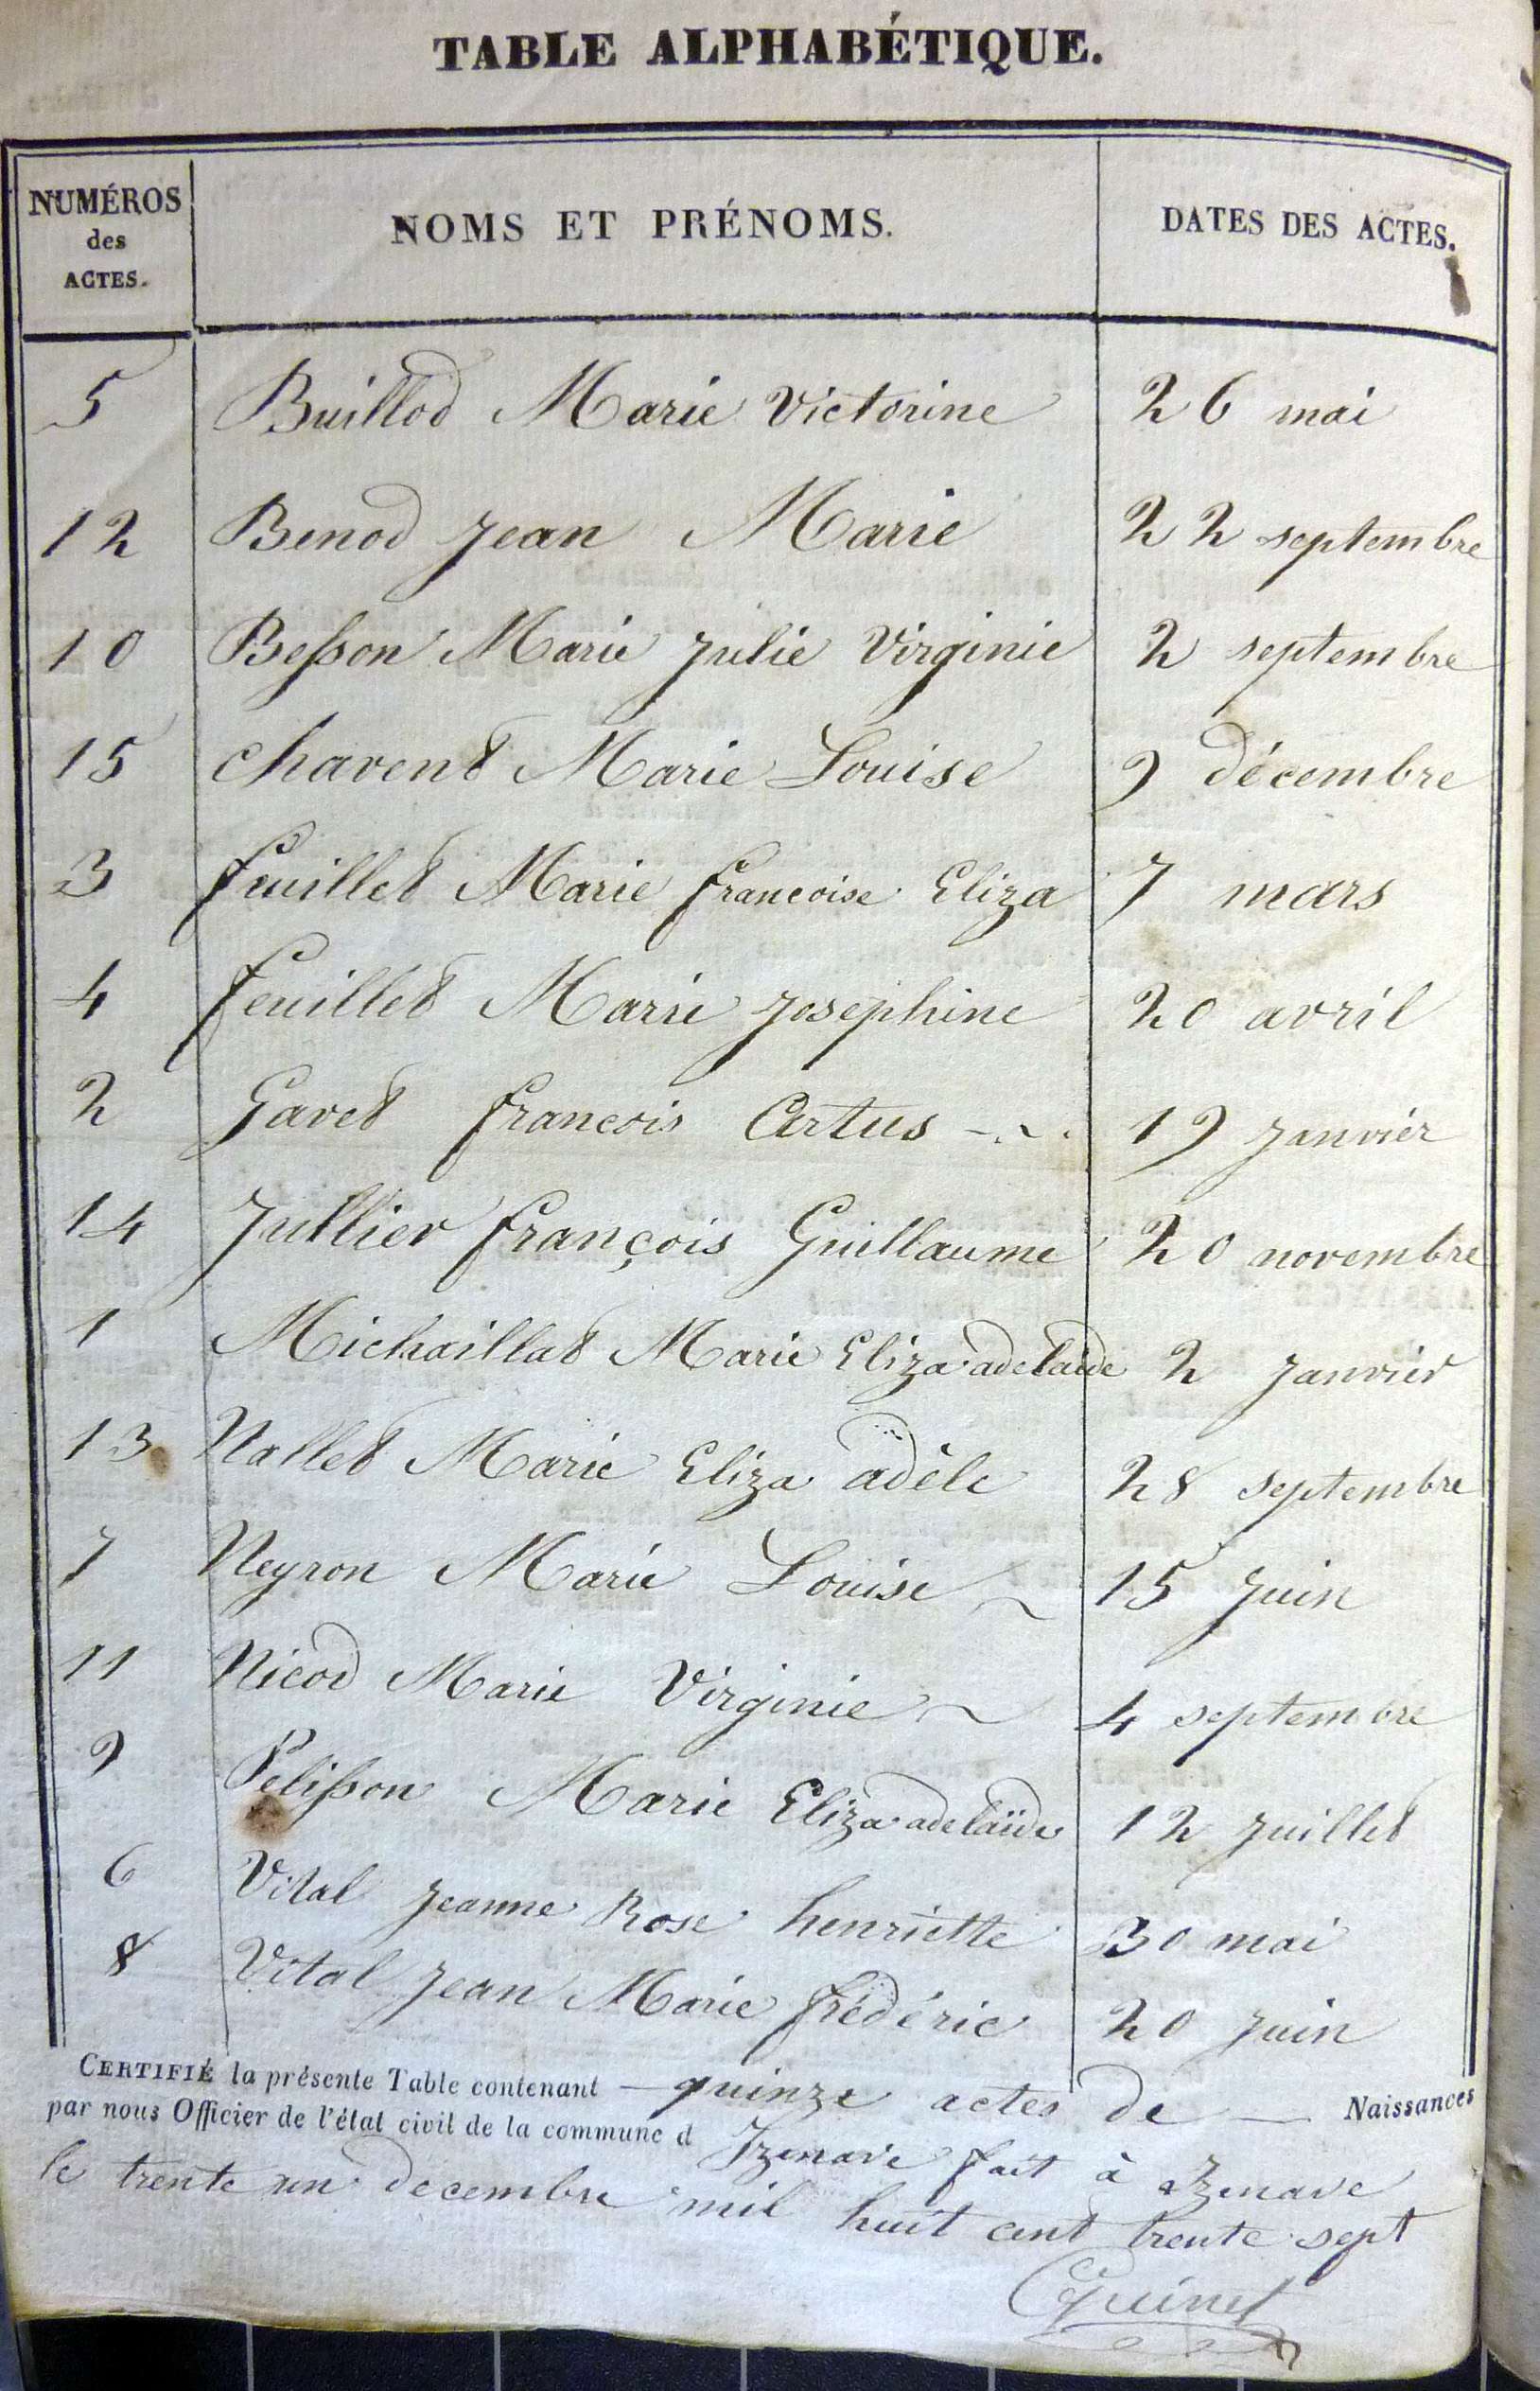 TABLE ALPHABÉTIQUE.
NUMÉROS des ACTES. NOMS ET PRÉNOMS. DATES DES ACTES.
5 Buillod Marie Victorine 26 mai
12 Benod Jean Marie 22 septembre
10 Besson Marie Julie Virginie 2 septembre
15 chavent Marie Louise 9 décembre
3 feuillet Marie francoise Eliza 7 mars
4 feuillet Marie Josephine 20 avril
2 Gavet francois Artus 19 Janvier
14 Jullier françois Guillaume 20 novembre
1 Michaillat Marie Eliza adelaide 2 Janvier
13 Nallet Marie Eliza adèle 28 septembre
7 Neyron Marie Louise 15 Juin
11 Nicod Marie Virginie 4 septembre
9 Pelisson Marie Eliza adelaïde 12 Juillet
6 Vital Jeanne Rose henriette 30 mai
8 Vital Jean Marie frédéric 20 Juin
CERTIFIÉ la présente Table contenant — quinze actes de — Naissances
par nous Officier de l'état civil de la commune d Izenave fait à Izenave
le trente un decembre mil huit cent trente sept
Quinet